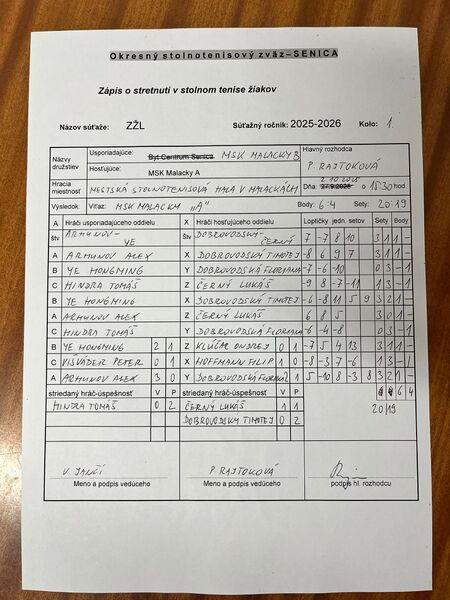 Okresný stolnotenisový zväz – SENICA
Zápis o stretnutí v stolnom tenise žiakov
Názov súťaže: ZŽL Súťažný ročník: 2025-2026 Kolo: 1.
Názvy družstiev Usporiadajúce: Byt Centrum Senica MSK MALACKY B Hlavný rozhodca
Hosťujúce: MSK Malacky A P. RAJTOKOVÁ
Hracia miestnosť MESTSKÁ STOLNOTENISOVÁ HALA V MALACKÁCH 2.10.2025 Dňa: 27.9.2025 o 15:30 hod.
Výsledok: Víťaz: MSK MALACKY "A" Body: 6-4 Sety: 20:19
A Hráči usporiadajúceho oddielu X Hráči hosťujúceho oddielu Loptičky jedn. setov Sety Body
štv ARMUNOV - YE Štv DOBROVODSKÝ - ČERNÝ 7 -7 8 10 3 1 1 -
A ARMUNOV ALEX X DOBROVODSKÝ TIMOTEJ -8 6 9 7 3 1 1 -
B YE HONGMING Y DOBROVODSKÁ FLORIANA -7 -6 -10 0 3 - 1
C HINDRA TOMÁŠ Z ČERNÝ LUKÁŠ -9 8 -7 -11 1 3 - 1
B YE HONGMING X DOBROVODSKÝ TIMOTEJ -6 -8 11 5 9 3 2 1 -
A ARMUNOV ALEX Z ČERNÝ LUKÁŠ 6 8 5 3 0 1 -
C HINDRA TOMÁŠ Y DOBROVODSKÁ FLORIANA -6 -4 -8 0 3 - 1
B YE HONGMING 2 1 Z KĽÚČÁR ONDREJ 0 1 -7 5 4 13 3 1 1 -
C VIŠVÁDER PETER 0 1 X HOFFMANN FILIP 1 0 -8 -3 7 -6 1 3 - 1
A ARMUNOV ALEX 3 0 Y DOBROVODSKÁ FLORIANA 2 1 5 -10 8 -3 8 3 2 1 -
striedaný hráč-úspešnosť V P striedaný hráč-úspešnosť V P 6 4
HINDRA TOMÁŠ 0 2 ČERNÝ LUKÁŠ 1 1 20 19
DOBROVODSKÝ TIMOTEJ 0 2
V. JANČÍ P. RAJTOKOVÁ
Meno a podpis vedúceho Meno a podpis vedúceho podpis hl. rozhodcu